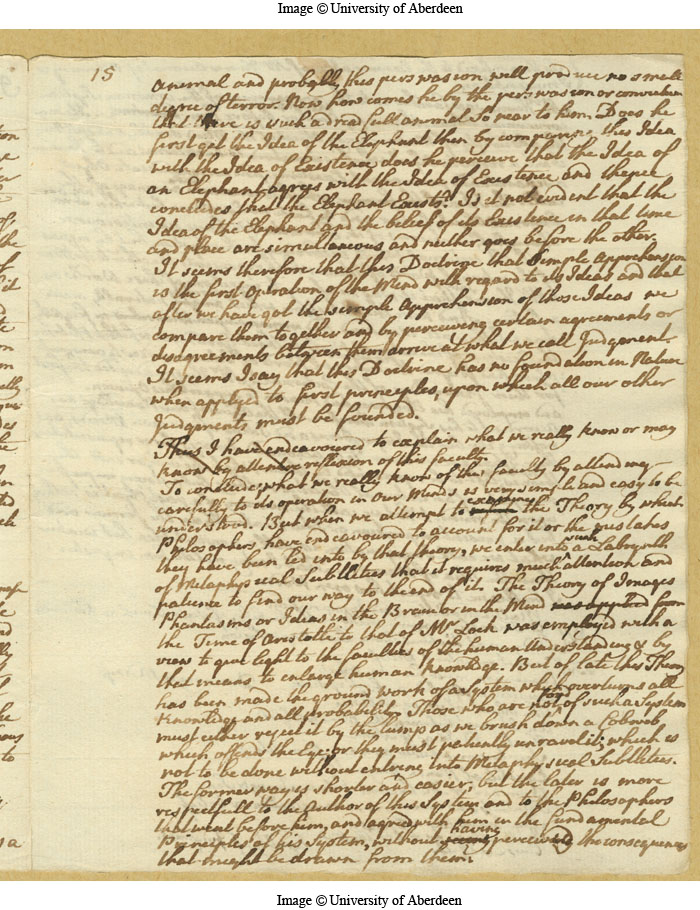 Image © University of Aberdeen
15
animal and probably this perswasion will produce no small
degree of terror. Now how comes he by the perswasion or conviction
that there is such a dreadfull animal so near to him. Does he
first get the Idea of the Elephant then by comparing this Idea
with the Idea of Existence does he perceive that the Idea of
an Elephant agrees with the Idea of Existence and thence
concludes that the Elephant Exists. Is it not evident that the
Idea of the Elephant and the belief of its Existence in that time
and place are simultaneous and neither goes before the other.
It seems therefore that this Doctrine that Simple Apprehension
is the first Operation of the Mind with regard to its Ideas and that
after we have got the simple Apprehension of those Ideas we
compare them together and by perceiving certain agreements or
disagreements between them arrive at what we call Judgment.
It seems I say that this Doctrine has no foundation in Nature
when applyed to first principles, upon which all our other
Judgments must be founded.
Thus I have endeavoured to explain what we really know or may
know by attentive reflexion of this faculty.
To conclude what we really know of the faculty by attending
carefully to its operation in our Minds is very simple and easy to be
understood. But when we attempt to examine the Theory by which
Philosophers have endeavoured to account for it or the mistakes
they have been led into by that theory, we enter into such a Labrynth
of Metaphysical Subtilities that it requires much attention and
patience to find our way to the end of it. The Theory of Images
Phantasms or Ideas in the Brain or in the Mind was applied from
the Time of Aristotle to that of Mr Lock was employed with a
view to give light to the faculties of the human Understanding & by
that means to enlarge human Knowledge. But of late this Theory
has been made the ground work of a System which overturns all
Knowledge and all probability. Those who are not for such a System
must either reject it by the lump as we brush down a Cobweb
which offends the Eye; or they must patiently unravel it; which is
not to be done without entring into Metaphysical Subtilities.
The former way is shorter and easier, but the later is more
respectfull to the Author of this System and to the Philosophers
that went before him, and agreed with him in the fundamental
Principles of his System, without having perceived the consequences
that might be drawn from them.
Image © University of Aberdeen